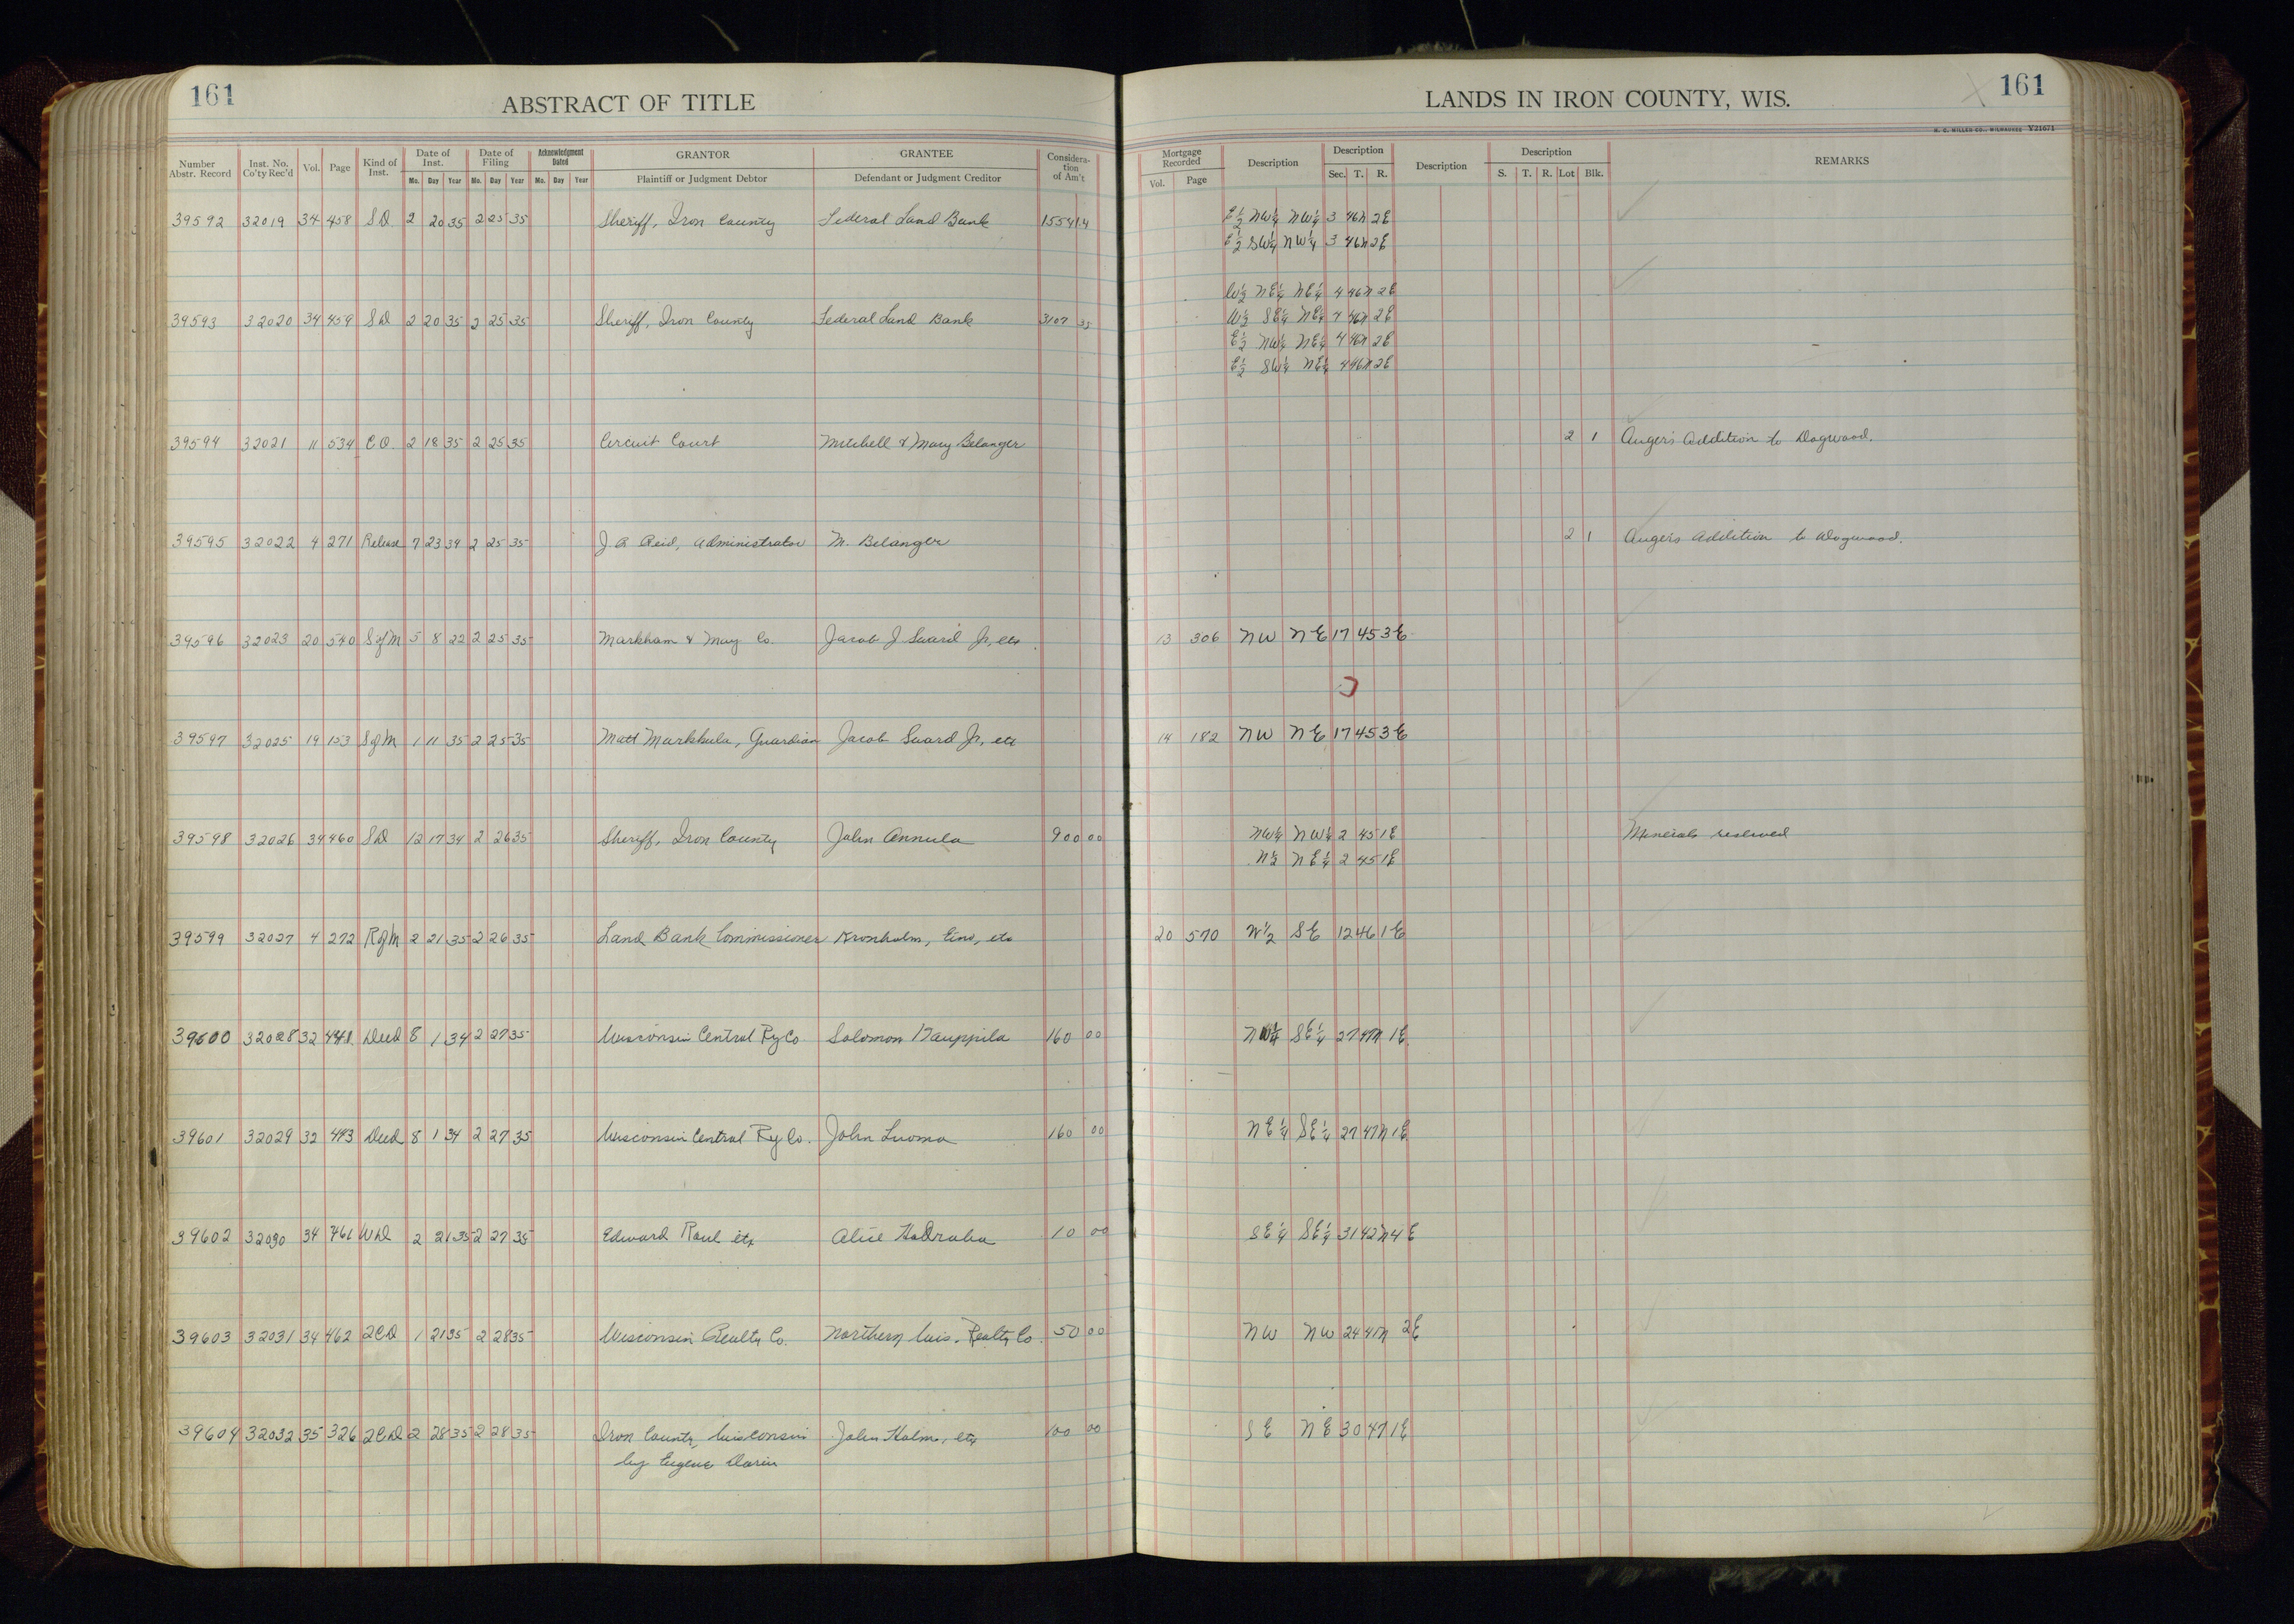 161
ABSTRACT OF TITLE
LANDS IN IRON COUNTY, WIS.
161
H. C. MILLER CO., MILWAUKEE Y21671
Number Abstr. Record Inst. No. Co'ty Rec'd Vol. Page Kind of Inst. Date of Inst. Date of Filing Acknowledgment Dated GRANTOR GRANTEE Consideration of Am't Mortgage Recorded Description Description Description Description REMARKS
Mo. Day Year Mo. Day Year Mo. Day Year Plaintiff or Judgment Debtor Defendant or Judgment Creditor Vol. Page Sec. T. R. S. T. R. Lot Blk.
39592 32019 34 458 S.D. 2 20 35 2 25 35 Sheriff, Iron County Federal Land Bank 1554 14 E½ NW¼ NW¼ 3 46N 2E
E½ SW¼ NW¼ 3 46N 2E
W½ NE¼ NE¼ 4 46N 2E
39593 32020 34 459 SD 2 20 35 2 25 35 Sheriff, Iron County Federal Land Bank 3107 35 W½ SE¼ NE¼ 4 46N 2E
E½ NW¼ NE¼ 4 46N 2E
E½ SW¼ NE¼ 4 46N 2E
39594 32021 11 534 C.O. 2 18 35 2 25 35 Circuit Court Mitchell & Mary Belanger 2 1 Auger's Addition to Dogwood.
39595 32022 4 271 Release 7 23 34 2 25 35 J A Reid, Administrator M. Belanger 2 1 Augers Addition to Dogwood.
39596 32023 20 540 SofM 5 8 22 2 25 35 Markham & May Co. Jacob J Suard Jr, etc 13 306 NW NE 17 45 3E
39597 32025 19 153 SofM 1 11 35 2 25 35 Matt Markkula, Guardian Jacob Suard Jr, etc 14 182 NW NE 17 45 3E
39598 32026 34 460 SD 12 17 34 2 26 35 Sheriff, Iron County John Annula 900 00 NW¼ NW¼ 2 45 1E Minerals reserved
N½ NE¼ 2 45 1E
39599 32027 4 272 RofM 2 21 35 2 26 35 Land Bank Commissioner Kronholm, Eino, etc 20 570 W½ SE 12 46 1E
39600 32028 32 Deed 8 1 34 2 27 35 Wisconsin Central Ry Co Solomon Kauppila 160 00 NW¼ SE¼ 27 47N 1E
39601 32029 32 493 Deed 8 1 34 2 27 35 Wisconsin Central Ry Co. John Luoma 160 00 NE¼ SE¼ 27 47N 1E
39602 32030 34 461 WD 2 21 35 2 27 35 Edward Raul etx Alice Hadraba 10 00 SE¼ SE¼ 31 42N 4E
39603 32031 34 462 2CD 1 21 35 2 28 35 Wisconsin Realty Co. Northern Wis. Realty Co. 50 00 NW NW 24 41N 2E
39604 32032 35 326 2CD 2 28 35 2 28 35 Iron County, Wisconsin John Holm, etx 100 00 SE NE 30 47 1E
by Eugene Darin